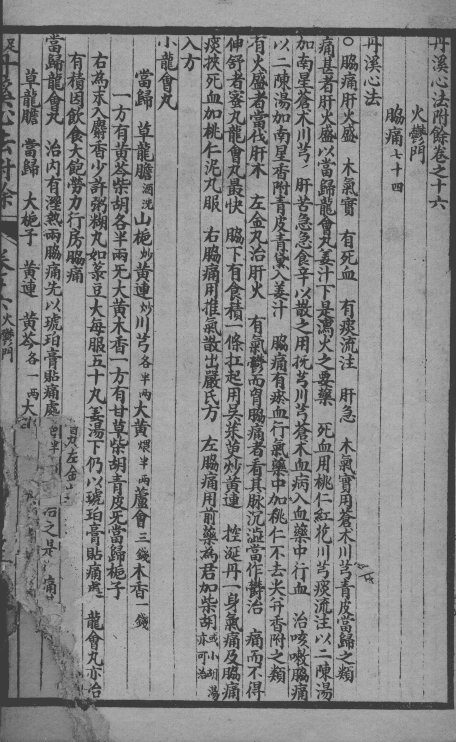 丹溪心法附餘卷之十六
火鬱門
脇痛七十四
丹溪心法
○脇痛肝火盛 木氣實 有死血 有痰流注 肝急 木氣實用蒼木川芎青皮當歸之類
痛甚者肝火盛以當歸龍會丸姜汁下是瀉火之要藥 死血用桃仁紅花川芎痰流注以二陳湯
加南星蒼木川芎 肝苦急急食辛以散之用撫芎川芎蒼木血病入血藥中行血 治咳嗽脇痛
以二陳湯加南星香附青皮青黛入姜汁 脇痛有瘀血行氣藥中加桃仁不去尖并香附之類
有火盛者當伐肝木 左金丸治肝火 有氣鬱而胷脇痛者看其脉沉澁當作鬱治 痛而不得
伸舒者蜜丸龍會丸最快 脇下有食積一條扛起用吳茱萸炒黃連 控涎丹一身氣痛及脇痛
痰挾死血加桃仁泥丸服 右脇痛用推氣散出嚴氏方 左脇痛用前藥為君加柴胡或小胡湯亦可治
入方
小龍會丸
當歸 草龍膽酒洗 山梔炒 黃連炒 川芎各半兩 大黃煨半兩 蘆會三錢 木香一錢
一方有黃芩柴胡各半兩无大黃木香一方有甘草柴胡青皮无當歸梔子
右為末入麝香少許粥糊丸如菉豆大每服五十丸姜湯下仍以琥珀膏貼痛處 龍會丸亦治
有積因飲食大飽勞力行房脇痛
當歸龍會丸 治內有濕熱兩脇痛先以琥珀膏貼痛處
草龍膽 當歸 大梔子 黃連 黃芩各一兩 大
丹溪心法附餘 火鬱門